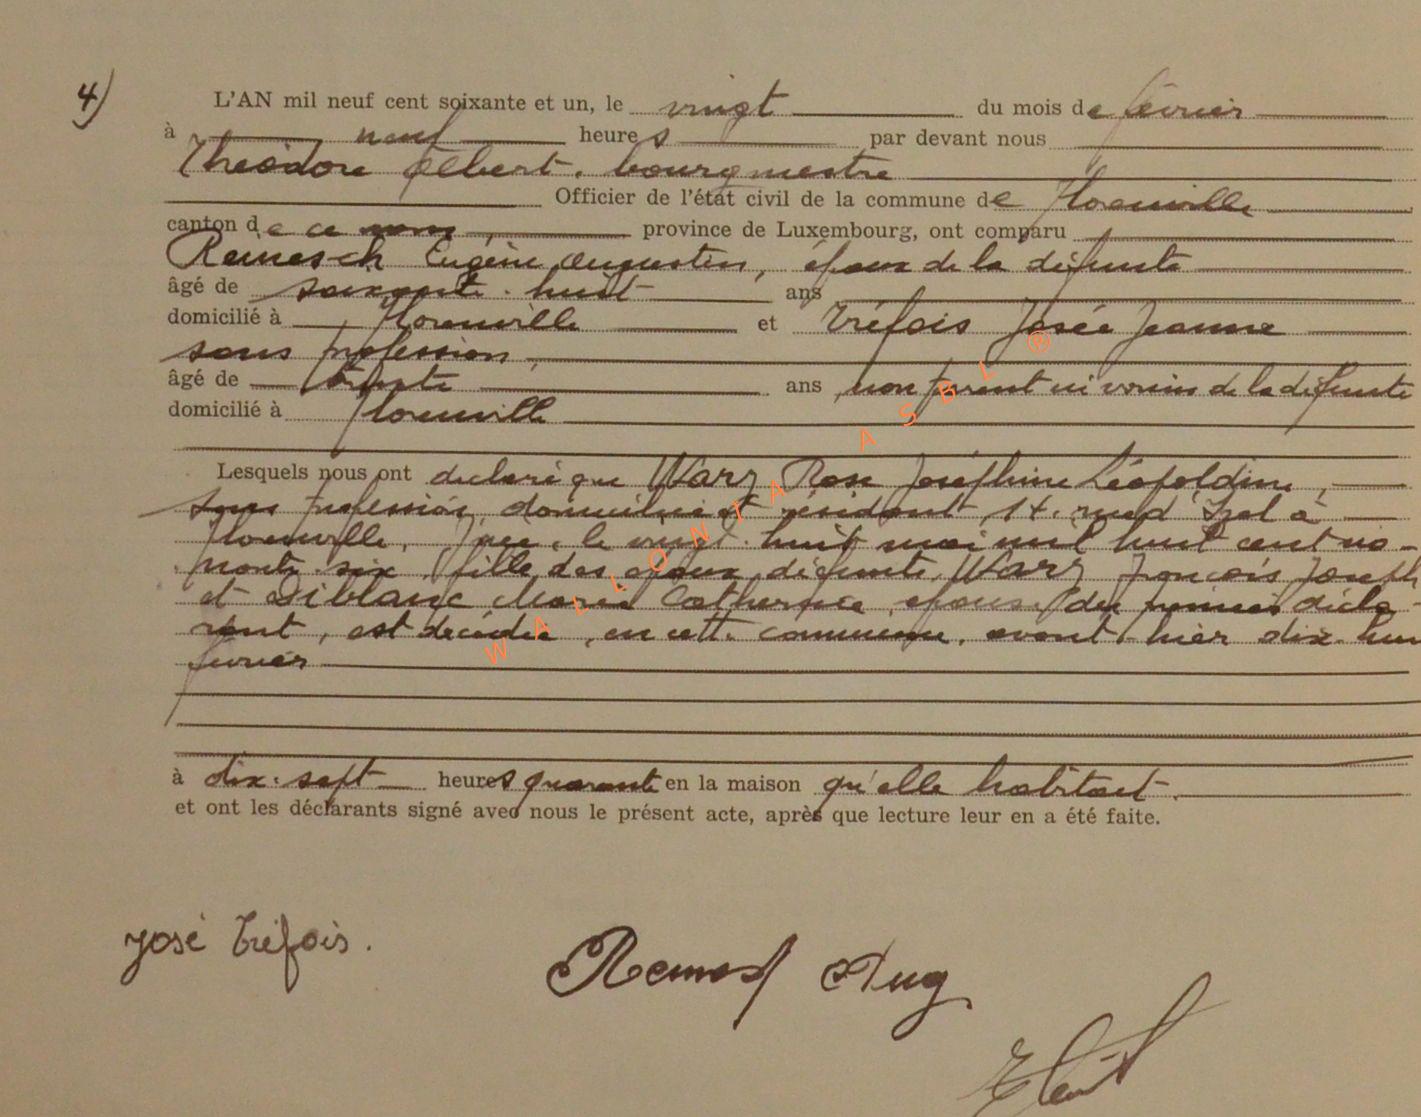 4)
L'AN mil neuf cent soixante et un, le vingt du mois de février
à neuf heures par devant nous
Théodore Albert, bourgmestre
Officier de l'état civil de la commune de Florenville
canton de ce nom, province de Luxembourg, ont comparu
Remesch Eugène Augustin, époux de la défunte
âgé de soixante-huit ans
domicilié à Florenville et Tréfois Josée Jeanne
sans profession,
âgé de trente ans, non parent ni voisin de la défunte
domicilié à Florenville
Lesquels nous ont déclaré que Warz Rose Joséphine Léopoldine,
sans profession, domiciliée et résidant, 14, d'Izel à
Florenville, née, le vingt-huit mai mil huit cent no-
nante six, fille des époux défunts, Warz François Joseph
et Diblanc Marie Catherine, épouse du premier décla-
rant, est décédée, en cette commune, avant hier dix-hui
février
à dix-sept heures quarante en la maison qu'elle habitait.
et ont les déclarants signé avec nous le présent acte, après que lecture leur en a été faite.
José Tréfois.
Remesch Aug
WALLONTA ASBL ®